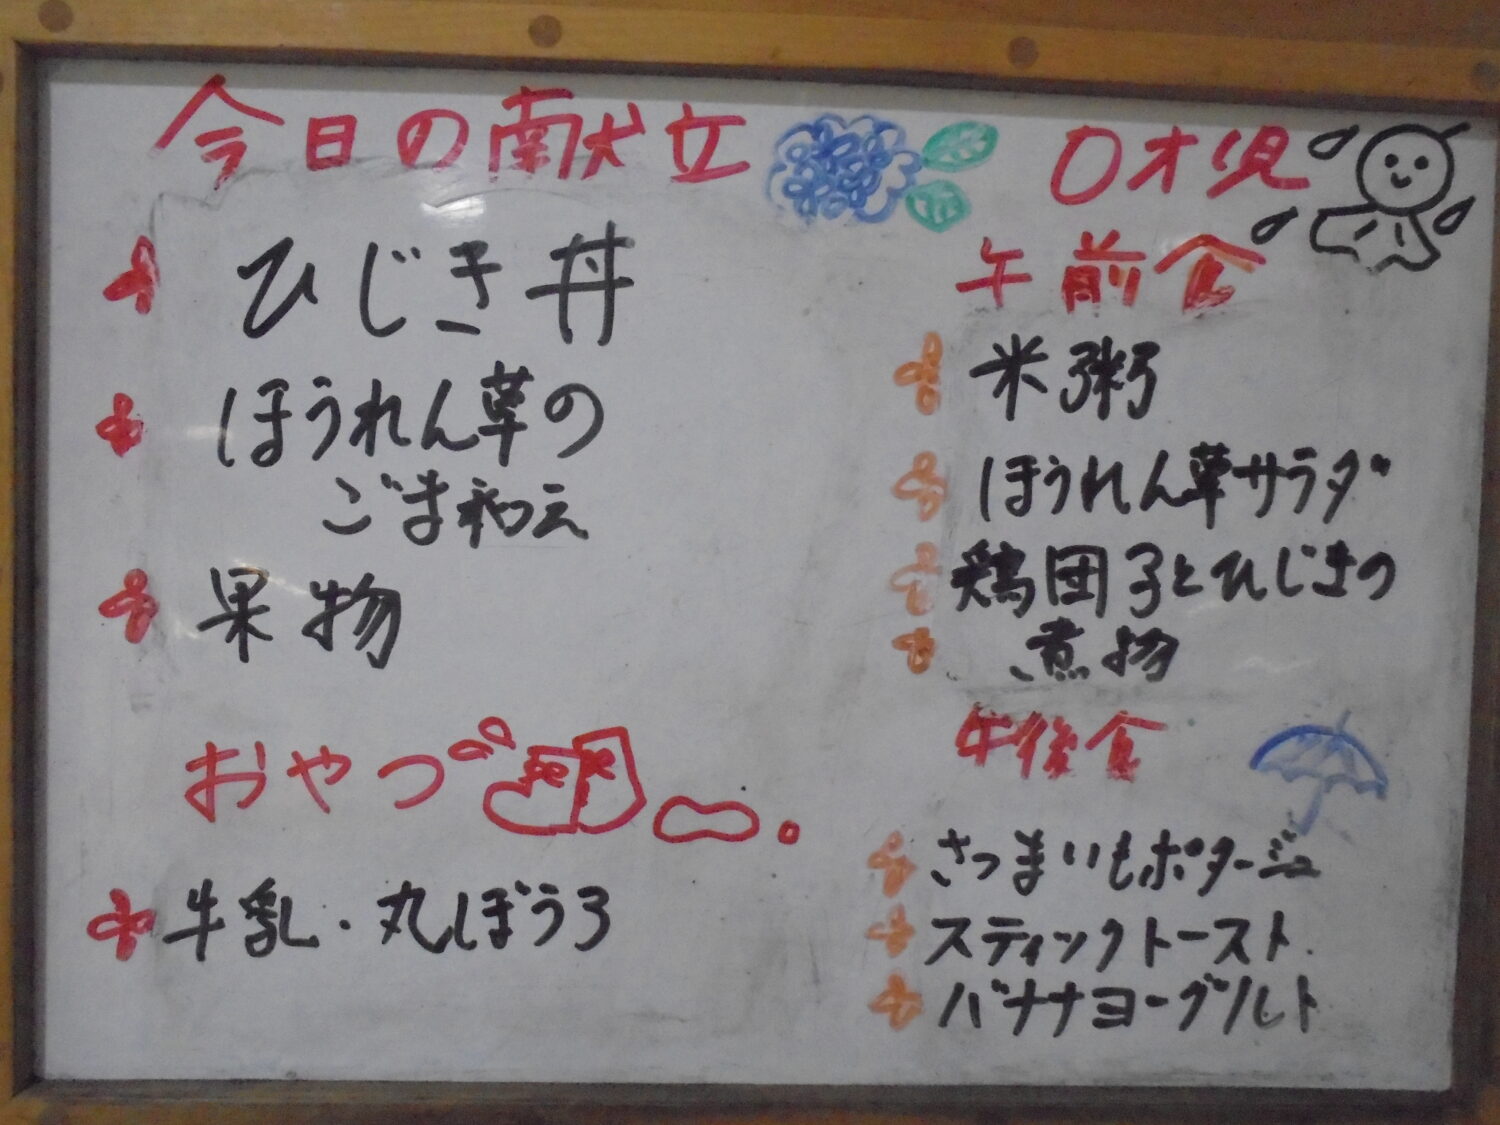 今日の献立
ひじき丼
ほうれん草の
ごま和え
果物
おやつ
牛乳・丸ぼうろ
0才児
午前食
米粥
ほうれん草サラダ
鶏団子とひじきの
煮物
午後食
さつまいもポタージュ
スティックトースト
バナナヨーグルト